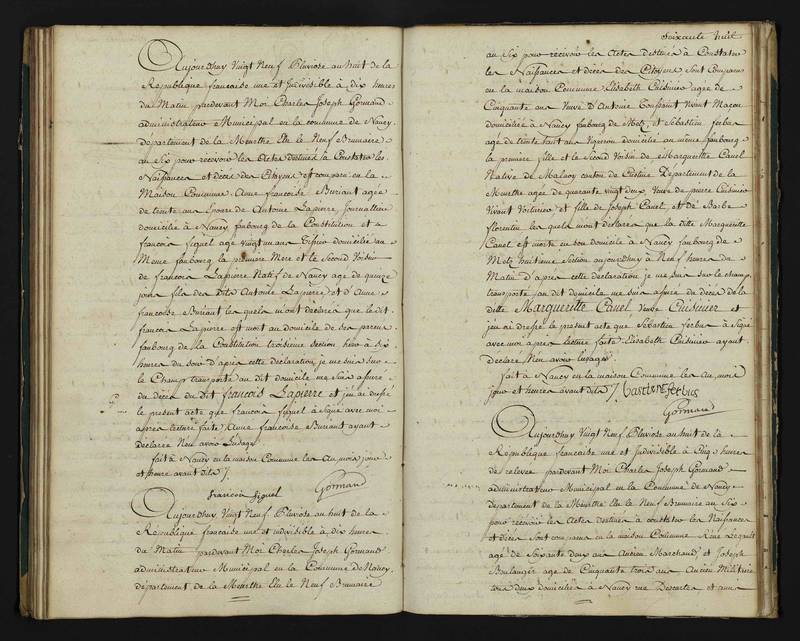 Aujourdhuy Vingt Neuf Pluviose an huit de la
République francaise une et Indivisible à dix heures
du Matin pardevant Moi Charles Joseph Gormand
administrateur Municipal en la commune de Nancy
departement de la Meurthe Elu le Neuf Brumaire
an Six pour recevoir les Actes destinés à Constater les
Naissances et décès des Citoyens est comparu en la
Maison Commune Anne francoise Buriant agée
de trente ans Epouse de Antoine Lapierre Journallier
domiciliée à Nancy faubourg de la Constitution et
francois siquel agé vingt un ans domicilié au
Meme faubourg la premiere Mere et le Second Voisin
de francois Lapierre Natif de Nancy age de quinze
jours fils des dits Antoine Lapierre et d'Anne
francoise Buriant les quels m'ont déclaré que le dit
francois Lapierre est mort au domicile de ses parens
faubourg de la Constitution troisieme section hier à Six
heures du Soir d'après cette déclaration je me suis sur
le Champ transporté au dit domicile me suis assuré
du décès du dit francois Lapierre et j'en ai drésé
le présent acte que francois siquel à Signé avec moi
apres lecture faite Anne francoise Buriant ayant
declaré Neu avoir Lusage
fait à Nancy en la maison Commune les An mois jour
et heure avant dits
francois siquel Gormand
Aujourdhuy Vingt Neuf Pluviose an huit de la
République francaise une et indivisible à dix heures
du Matin pardevant Moi Charles Joseph Gormand
administrateur Municipal en la Commune de Nancy
departement de la Meurthe Elu le Neuf Brumaire
Soixante huit
an Six pour recevoir les Actes destinés à Constater
les Naissances et décès des Citoyens sont Comparus
en la maison Commune Elisabeth Cuisinier agée de
Cinquante ans Veuve d'Antoine Toussaint Vivant Maçon
domiciliée à Nancy faubourg de Metz et Sébastien ferbus
agé de trente huit ans Vigneron domicilié au même faubourg
la premiere fille et le Second Voisin de Margueritte Canel
Native de Malnoy canton de Custine Departement de la
Meurthe agée de quarante vingt deux Veuve de pierre Cuisinier
Vivant Voiturier et fille de Joseph Canel et de Barbe
florentin les quels mont déclaré que la ditte Margueritte
Canel est morte en son domicile à Nancy faubourg de
Metz huitieme Section aujourdhuy à Neuf heures du
Matin d'après cette déclaration je me suis sur le champ
transporté au dit domicile me suis assuré du décès de la
ditte Margueritte Canel Veuve Cuisinier et
j'en ai drésé le présent acte que Sébastien ferbus à Signé
avec moi après lecture faite Elisabeth Cuisinier ayant
déclaré Neu avoir lusage
fait à Nancy en la maison Commune les An mois
jour et heures avant dits bastiene ferbus
Gormand
Aujourdhuy Vingt Neuf Pluviose an huit de la
République francaise une et indivisible à Cinq heures
de relevée pardevant Moi Charles Joseph Gormand
administrateur Municipal en la Commune de Nancy
departement de la Meurthe Elu le Neuf Brumaire an Six
pour recevoir les Actes destinés à constater les Naissances
et décès Sont comparus en la maison Commune
agé de Soixante deux ans Ancien Marchand et Joseph
Boulanger age de Cinquante trois ans Ancien Militaire
tous deux domiciliés à Nancy rue Descartes et